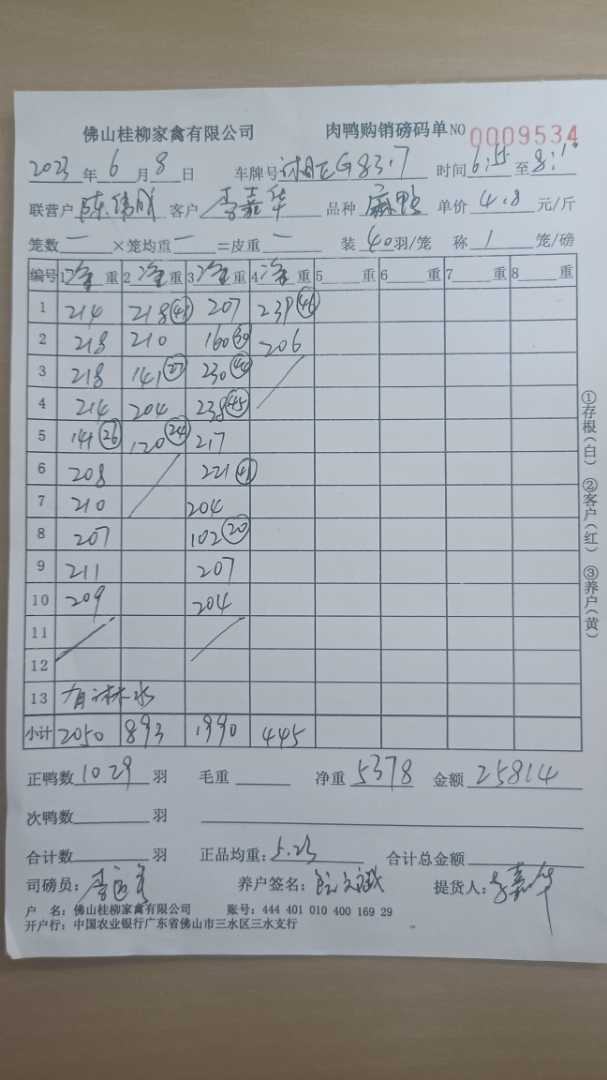 佛山桂柳家禽有限公司 肉鸭购销磅码单 NO 0009534
2023 年 6 月 8 日 车牌号 G83.7 时间 6:55 至 8:1
联营户 陈伟成 客户 李嘉华 品种 麻鸭 单价 4.8 元/斤
笼数 一 ×笼均重 一 =皮重 一 装 40 羽/笼 称 1 笼/磅
编号 1 净 重 2 净 重 3 净 重 4 净 重 5 重 6 重 7 重 8 重
1 214 218 (43) 207 239 (46)
2 218 210 160 (30) 206
3 218 141 (27) 230 (44)
4 214 204 238 (45)
5 141 (26) 120 (24) 217
6 208 221 (41)
7 210 204
8 207 102 (20)
9 211 207
10 209 204
11
12
13 有淋水
小计 2050 893 1990 445
正鸭数 1029 羽 毛重 净重 5378 金额 25814
次鸭数 羽
合计数 羽 正品均重: 5.23 合计总金额
司磅员: 养户签名: 提货人: 李嘉华
户 名: 佛山桂柳家禽有限公司 账号: 444 401 010 400 169 29
开户行: 中国农业银行广东省佛山市三水区三水支行
①存根(白) ②客户(红) ③养户(黄)